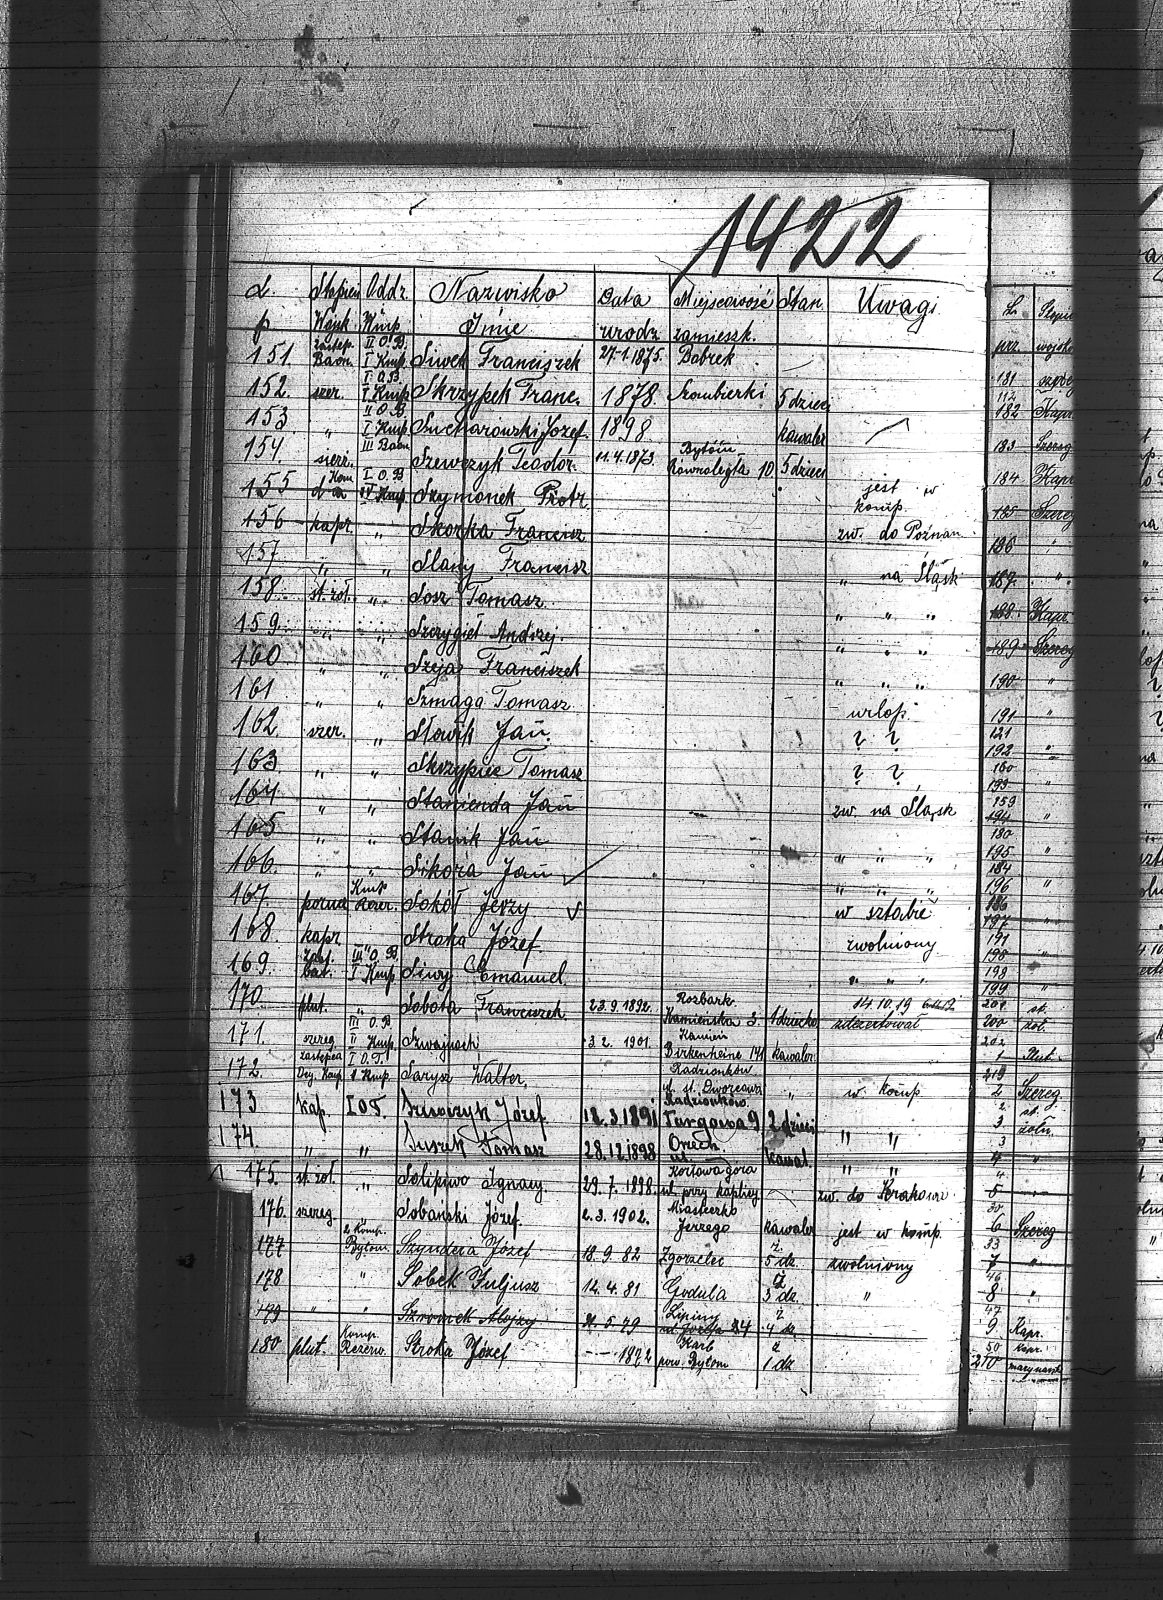 1422
L. Stopień Oddz. Nazwisko Data Miejscowość Stan Uwagi
p Wojsk Kmp. Imię urodz. zamieszk.
151 zastęp. Baon. II O.B. I Kmp. Siwek Franciszek 27.1.1875. Bobrek
152. szer. I O.B. I Kmp. Skrzypek Franc. 1878. Szombierki 5 dzieci
153 " II O.B. I Kmp. Sucharowski Józef. 1898. kawaler
154. szer. III Baon Szewczyk Teodor. 11.4.1873. Bytom Równoległa 10 5 dzieci
155 Kom d-a I O.B. IV Kmp Szymonek Piotr jest w komp.
156 kapr. " Skorka Francisz. zw. do Poznan
157 " " Slany Francisz " na Śląsk
158. st. żoł. " Sosz Tomasz. " " "
159 " " Szczygieł Andrzej. " " "
160 " " Szyja Franciszek " " "
161 " " Szmaga Tomasz urlop.
162 szer. " Słowik Jan. ? ?
163 " " Skrzypiec Tomasz ? ?
164 " " Stanienda Jan zw. na Śląsk
165 " " Stanik Jan " " "
166. " " Sikora Jan " " "
167. Kmp. Rezer. Sokół Jerzy w sztabie
168 kapr. " Stroka Józef zwolniony
169. zast. bat. III O.B. I Kmp. Siwy Emanuel. " "
170 plut. " Sobota Franciszek 23.9.1892. Rozbark. Kamieńska 3. 1 dziecko 14.10.19 zdezerterował
171. szereg. III O.B. II Kmp. 3.2.1901. Kamień Birkenheine 141 kawaler
172. zastępca I O.T. 1 Kmp. Sarysz Walter, Radzionków ul. st. Dworcowa " w komp
173 Kap. I O.T. Szewczyk Józef 12.3.1891 Radzionków Targowa 9 2 dzieci " "
174. " " Suszek Tomasz 28.12.1898 Orzech kawal. " "
175. st. żoł. " Solipiwo Ignacy. 29.7.1898. Kozłowa góra ul. przy kaplicy zw. do Krakowa
176. szereg. Sobański Józef. 2.3.1902. Miasteczko Jerzego kawaler jest w komp.
177 2 Komp. Bytom. Szyndera Józef 18.9 82 Zgorzelec ż. 5 dz. zwolniony
178 " Sobek Juljusz 12.4.81 Godula ż 3 dz "
179 " " Szromek Alojzy 5.79 Lipiny 24 ż 4 dz
180 plut. Komp. Rezerw. Stroka Józef – – 1892 Karb pow. Bytom ż 1 dz
L. Stopie
prz. wojsko
181 szereg
112
182 Kapr
183 Szereg
184 Kapr
185 Szereg
186 "
187. "
188. Kapr
189 Szereg
190 "
191 "
121
192 "
160
193
159
194 "
180
195 "
184
196 "
186
197 "
191
198 "
198
199 "
200 st. żoł.
202
1 Plut.
219
2 Szereg.
3 st. żołn.
3
4 "
4
5 "
30
6 Szereg
33
7 "
46
8 "
47
9 Kapr.
50 Kapr.
210